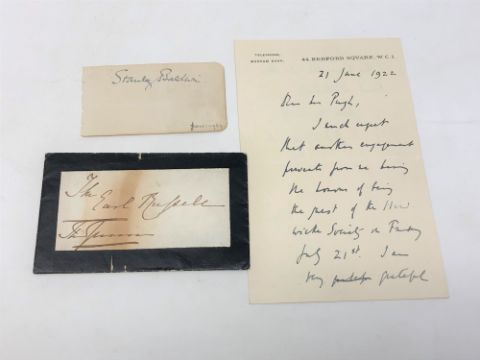 Stanley Baldwin
The
Earl Russell
TELEPHONE,
MUSEUM
44, BEDFORD SQUARE, W.C.1.
21 June 1922
Dear
I much regret
that another engagement
prevents from me having
the honour of being
the guest of the
Society on
July 21st. I am
very grateful